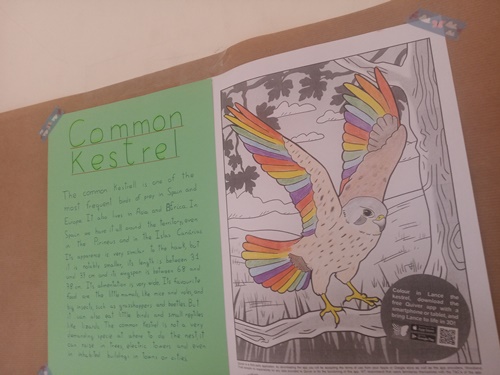 Common
Kestrel
The common Kestrel is one of the
most frequent birds of prey in Spain and
Europe. It also lives in Asia and Africa. In
Spain we have it all around the territory, even
in the Pirineos and in the Islas Canarias.
Its aparence is very similar to the hawk, but
it is notable smaller, its length is between 35
and 39 cm and its wingspan is between 68 and
78 cm. Its alimentation is very wide. Its favourite
food are the little mammals, like mice and voles, and
big insects, such as grasshoppers and beetles. But
it can also eat little birds and small reptiles
like lizards. The common kestrel is not a very
demanding specie at where to do the nest, it
can nose in trees, electric towers and even
in inhabited buildings in towns or cities.
Colour in Lance the
kestrel, download the
free Quiver app with a
smartphone or tablet, and
bring Lance to life in 3D!